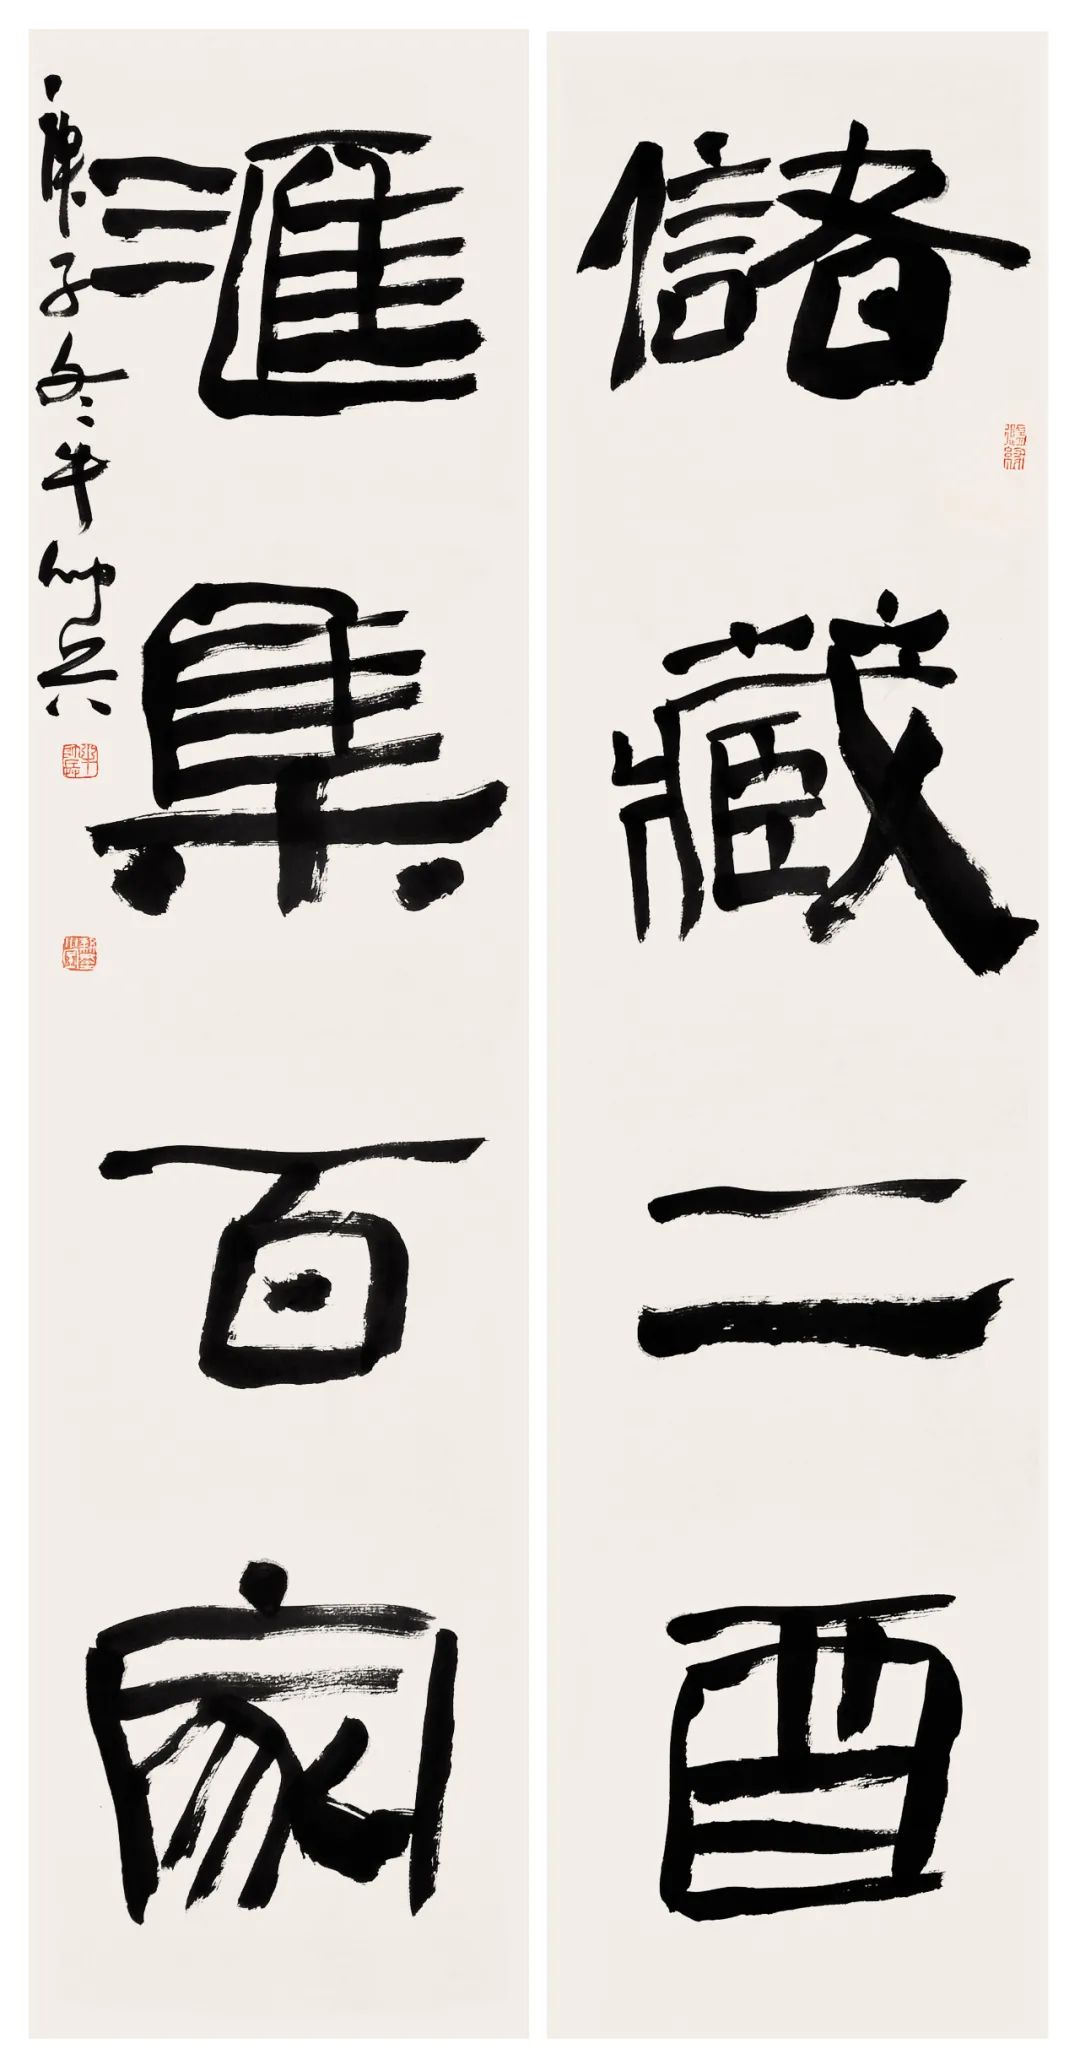 儲藏二酉
匯集百家
庚子冬牛仲兵